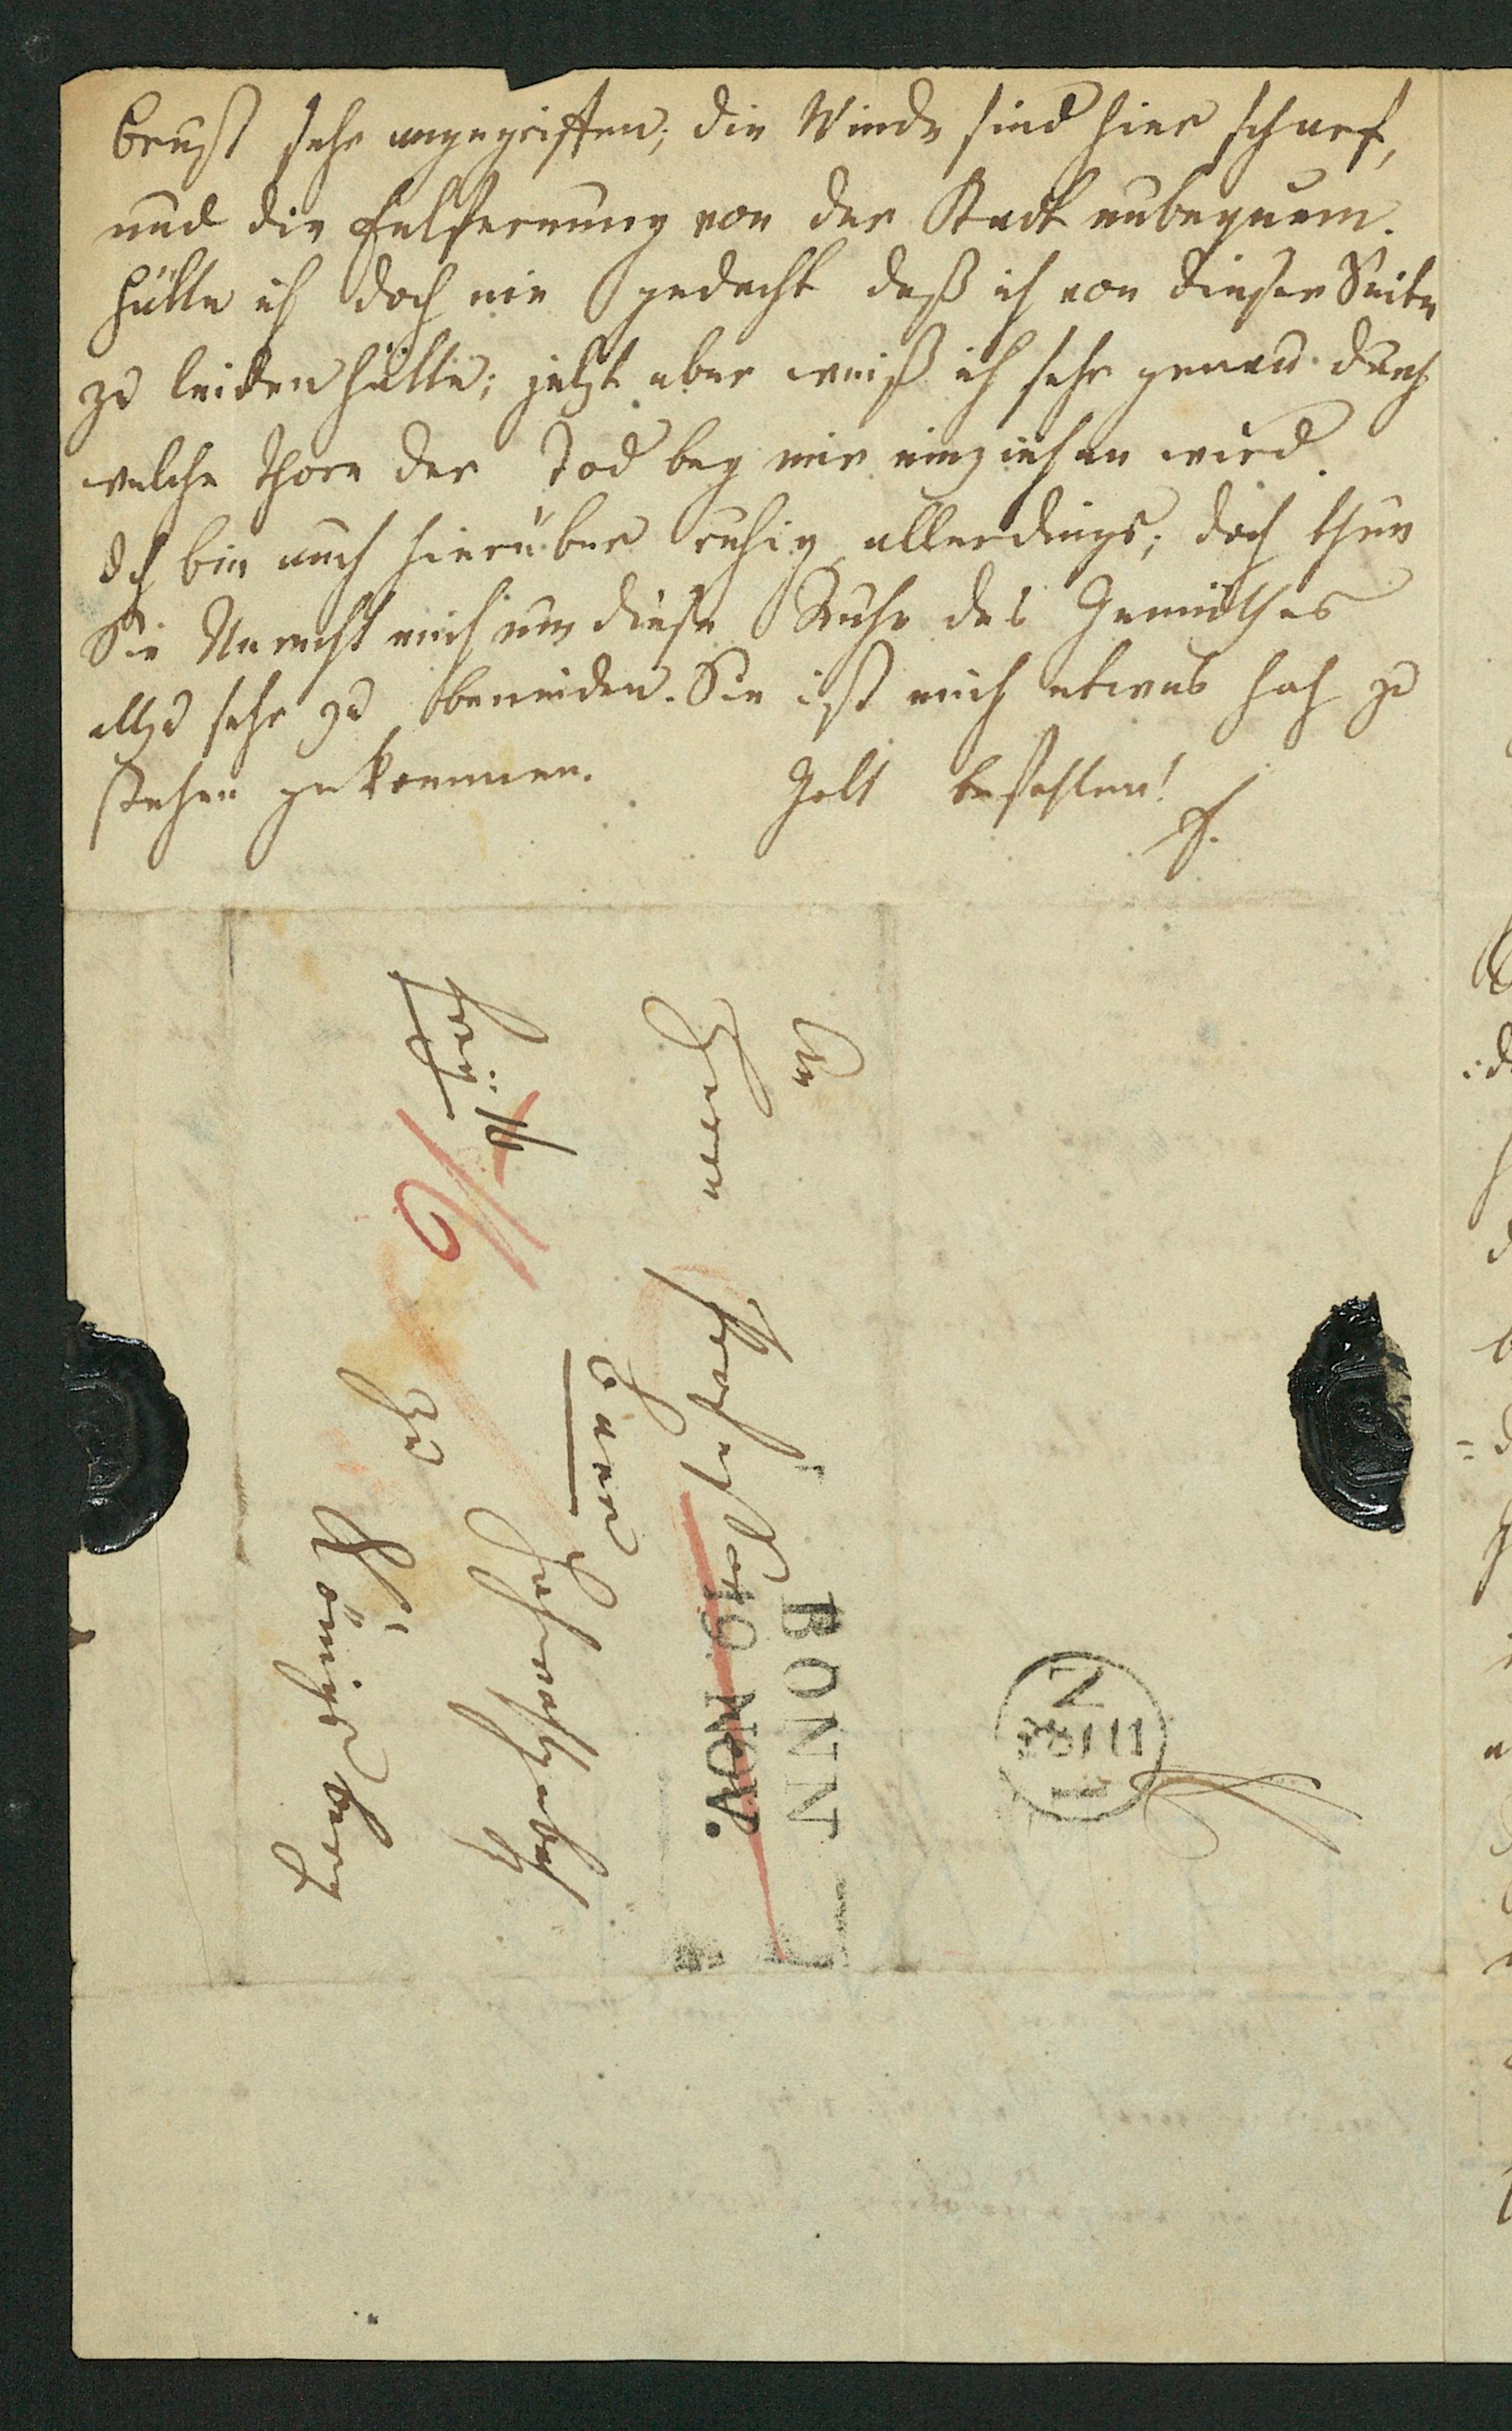 Brust sehr angegriffen; die Winde sind hier scharf,
und die Entfernung von der Stadt unbequem.
Hätte ich doch nie gedacht daß ich von dieser Seite
zu leiden hätte; jetzt aber weiß ich sehr genau durch
welche Thore der Tod bey mir einziehen wird.
Ich bin auch hierüber ruhig allerdings; doch thun
Sie Unrecht mich um diese Ruhe des Gemüthes
allzu sehr zu beneiden. Sie ist mich etwas hoch zu
stehen gekommen. Gott befohlen!
F.
An
Herrn
Professor
Hochwohlgeb
Zu
Königsberg
frei
BONN
19 NOV.
N